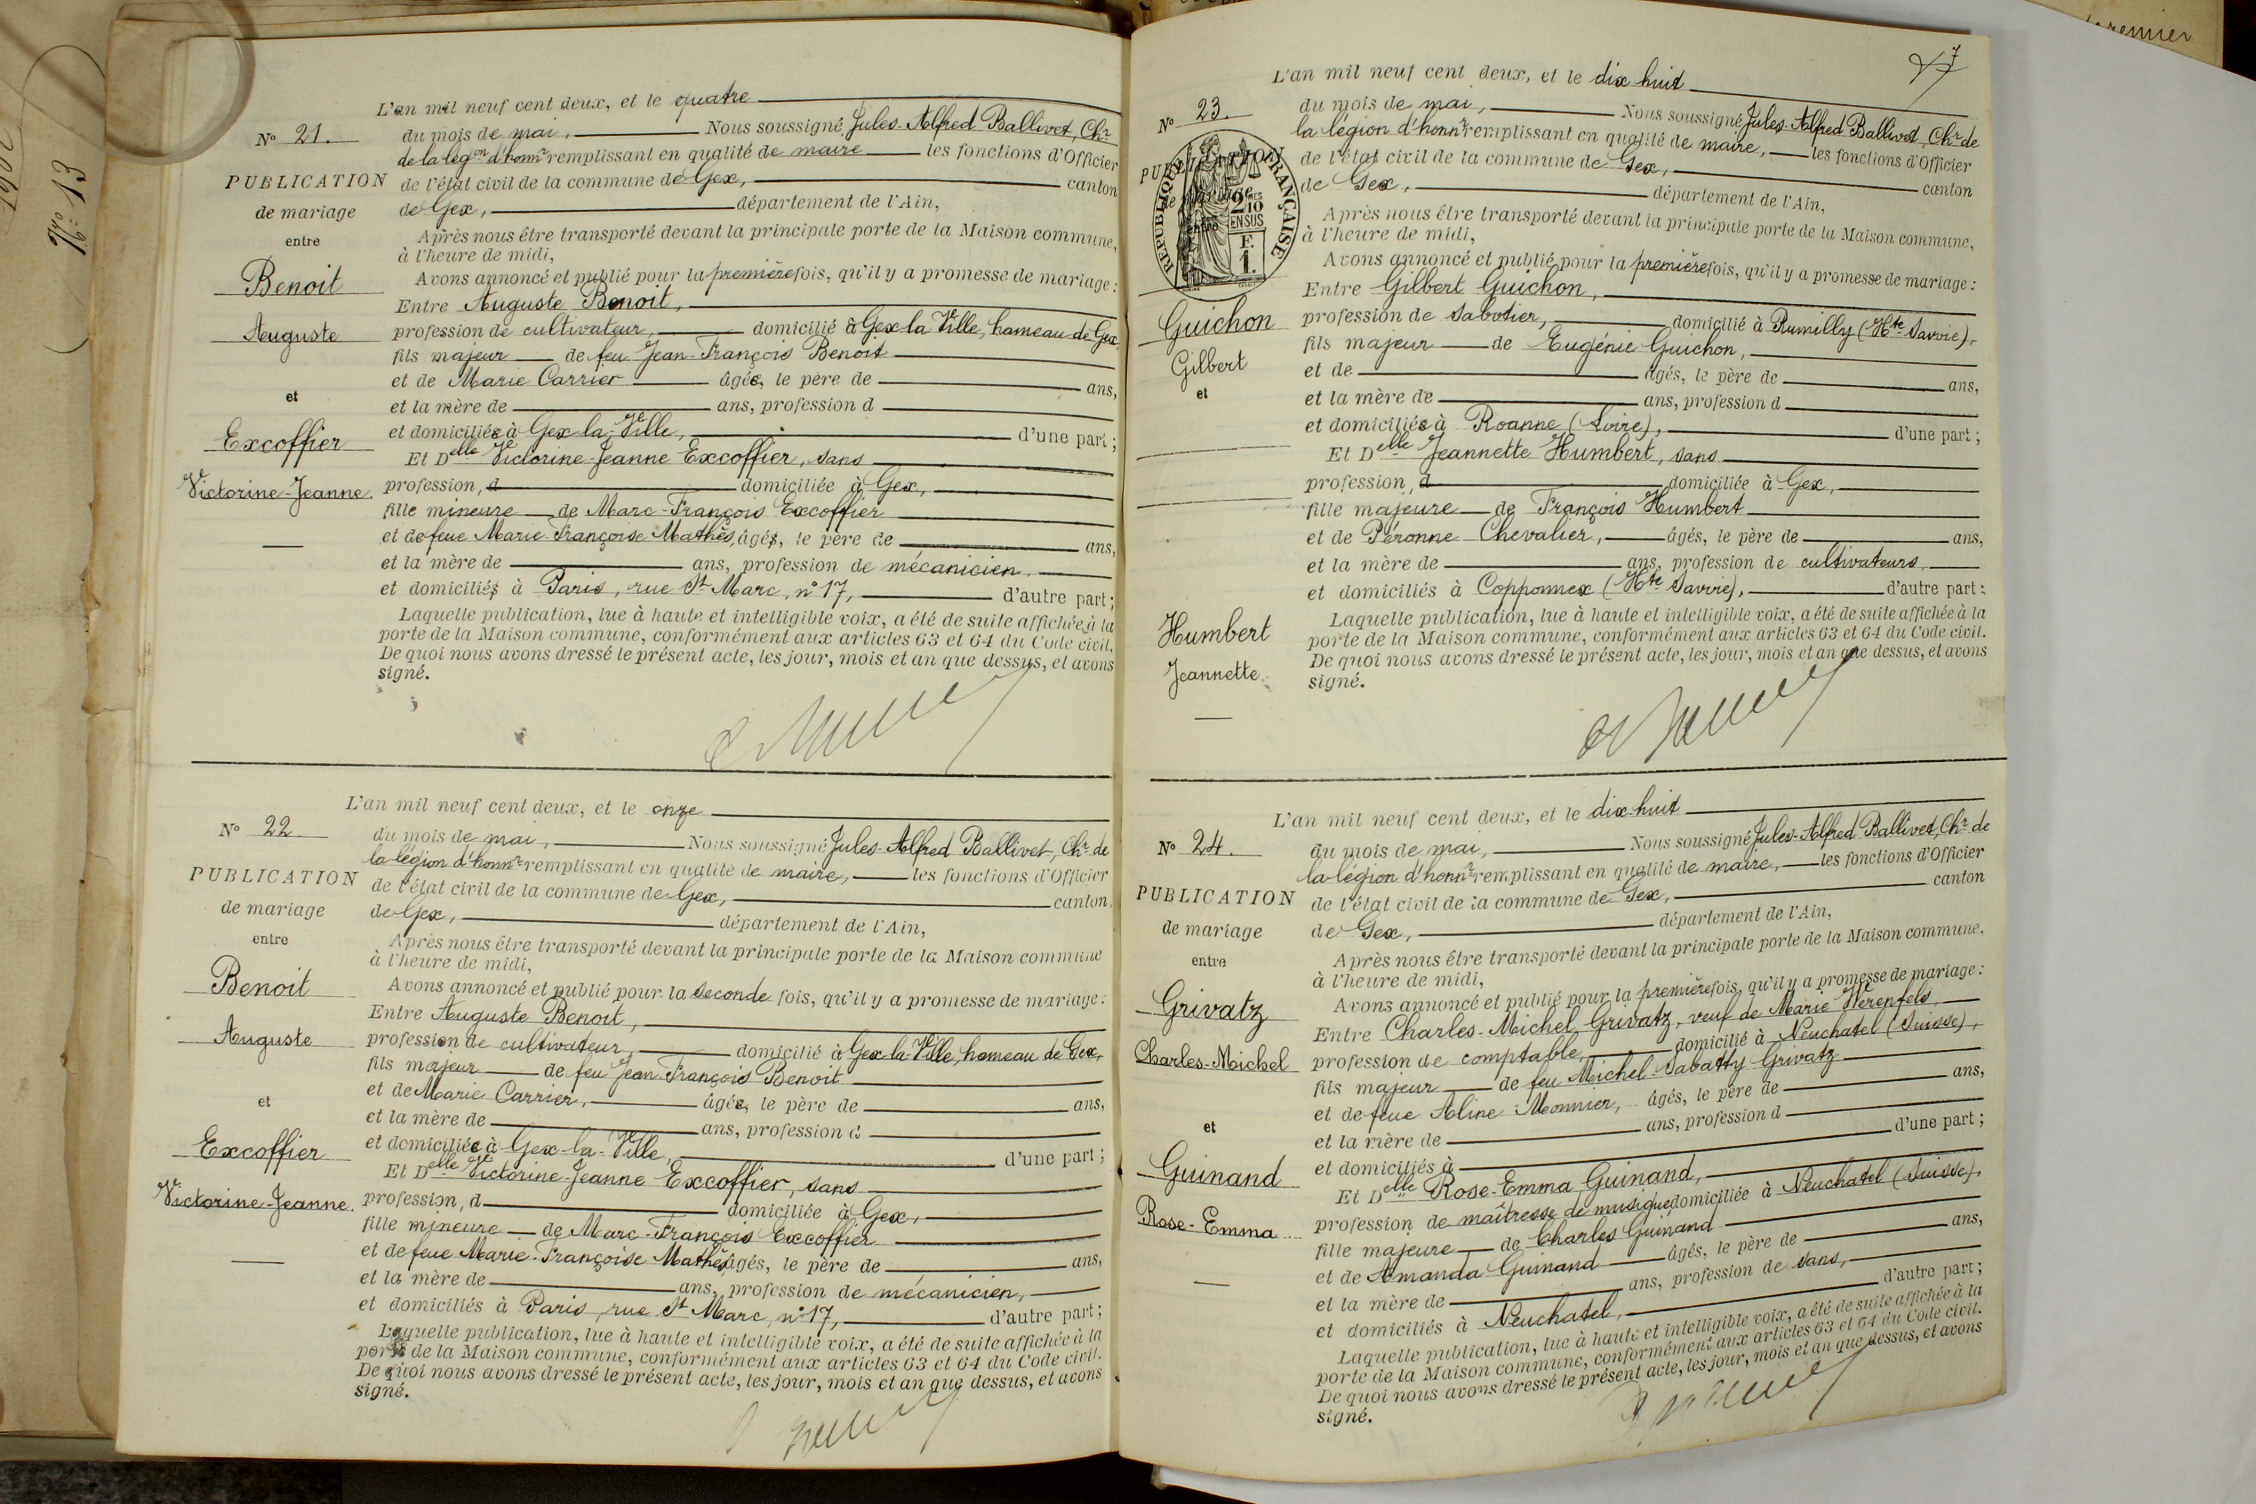 1902
No: 13
premier
L'an mil neuf cent deux, et le quatre
No 21.
du mois de mai, Nous soussigné Jules-Alfred Ballivet, Chr
de la légon d'honnr remplissant en qualité de maire les fonctions d'Officier
PUBLICATION
de l'état civil de la commune de Gex, canton
de mariage
de Gex, département de l'Ain,
entre
Après nous être transporté devant la principale porte de la Maison commune,
à l'heure de midi,
Avons annoncé et publié pour la première fois, qu'il y a promesse de mariage :
Benoit
Entre Auguste Benoit,
Auguste
profession de cultivateur, domicilié à Gex-la-Ville, hameau de Gex,
fils majeur de feu Jean-François Benoit
et de Marie Carrier âgés, le père de ans,
et
et la mère de ans, profession d
et domiciliés à Gex-la-Ville, d'une part ;
Excoffier
Et Delle Victorine-Jeanne Excoffier, sans
Victorine-Jeanne.
profession, d domiciliée à Gex,
fille mineure de Marc-François Excoffier
et de feue Marie-Françoise Mathès, âgés, le père de ans,
et la mère de ans, profession de mécanicien,
et domiciliés à Paris, rue St Marc, n° 17, d'autre part ;
Laquelle publication, lue à haute et intelligible voix, a été de suite affichée à la
porte de la Maison commune, conformément aux articles 63 et 64 du Code civil.
De quoi nous avons dressé le présent acte, les jour, mois et an que dessus, et avons
signé.
L'an mil neuf cent deux, et le onze
No 22
du mois de mai, Nous soussigné Jules-Alfred Ballivet, Chr de
la légion d'honnr remplissant en qualité de maire, les fonctions d'Officier
PUBLICATION
de l'état civil de la commune de Gex, canton
de mariage
de Gex, département de l'Ain,
entre
Après nous être transporté devant la principale porte de la Maison commune
à l'heure de midi,
Avons annoncé et publié pour la seconde fois, qu'il y a promesse de mariage :
Benoit
Entre Auguste Benoit,
Auguste
profession de cultivateur, domicilié à Gex-la-Ville, hameau de Gex,
fils majeur de feu Jean-François Benoit
et de Marie Carrier, âgés, le père de ans,
et
et la mère de ans, profession d
et domiciliés à Gex-la-Ville, d'une part ;
Excoffier
Et Delle Victorine-Jeanne Excoffier, sans
Victorine-Jeanne.
profession, d domiciliée à Gex,
fille mineure de Marc-François Excoffier
et de feue Marie-Françoise Mathès, âgés, le père de ans,
et la mère de ans, profession de mécanicien,
et domiciliés à Paris, rue St Marc, n° 17, d'autre part ;
Laquelle publication, lue à haute et intelligible voix, a été de suite affichée à la
porte de la Maison commune, conformément aux articles 63 et 64 du Code civil.
De quoi nous avons dressé le présent acte, les jour, mois et an que dessus, et avons
signé.
7
L'an mil neuf cent deux, et le dix-huit
No 23.
du mois de mai, Nous soussigné Jules-Alfred Ballivet, Chr de
la légion d'honnr remplissant en qualité de maire, les fonctions d'Officier
PUBLICATION
de l'état civil de la commune de Gex, canton
de mariage
de Gex, département de l'Ain,
entre
RÉPUBLIQUE FRANÇAISE
2 10MES EN SUS
F. 1.
Après nous être transporté devant la principale porte de la Maison commune,
à l'heure de midi,
Avons annoncé et publié pour la première fois, qu'il y a promesse de mariage :
Entre Gilbert Guichon,
Guichon
profession de sabotier, domicilié à Rumilly (Hte Savoie),
Gilbert
fils majeur de Eugénie Guichon,
et
et de âgés, le père de ans,
et la mère de ans, profession d
et domiciliés à Roanne (Loire), d'une part ;
Et Delle Jeannette Humbert, sans
profession, d domiciliée à Gex,
fille majeure de François Humbert
et de Péronne Chevalier, âgés, le père de ans,
et la mère de ans, profession de cultivateurs,
et domiciliés à Copponnex (Hte Savoie), d'autre part ;
Humbert
Jeannette.
Laquelle publication, lue à haute et intelligible voix, a été de suite affichée à la
porte de la Maison commune, conformément aux articles 63 et 64 du Code civil.
De quoi nous avons dressé le présent acte, les jour, mois et an que dessus, et avons
signé.
L'an mil neuf cent deux, et le dix-huit
No 24.
du mois de mai, Nous soussigné Jules-Alfred Ballivet, Chr de
la légion d'honnr remplissant en qualité de maire, les fonctions d'Officier
PUBLICATION
de l'état civil de la commune de Gex, canton
de mariage
de Gex, département de l'Ain,
entre
Après nous être transporté devant la principale porte de la Maison commune,
à l'heure de midi,
Avons annoncé et publié pour la première fois, qu'il y a promesse de mariage :
Grivatz
Entre Charles-Michel Grivatz, veuf de Marie Werenfels,
Charles-Michel
profession de comptable, domicilié à Neuchatel (Suisse),
fils majeur de feu Michel-Sabatty Grivatz
et de feue Aline Meonnier, âgés, le père de ans,
et
et la mère de ans, profession d
et domiciliés à d'une part ;
Guinand
Et Delle Rose-Emma Guinand,
Rose-Emma
profession de maîtresse de musique domiciliée à Neuchatel (Suisse),
fille majeure de Charles Guinand
et de Amanda Guinand âgés, le père de ans,
et la mère de ans, profession de sans,
et domiciliés à Neuchatel, d'autre part ;
Laquelle publication, lue à haute et intelligible voix, a été de suite affichée à la
porte de la Maison commune, conformément aux articles 63 et 64 du Code civil.
De quoi nous avons dressé le présent acte, les jour, mois et an que dessus, et avons
signé.